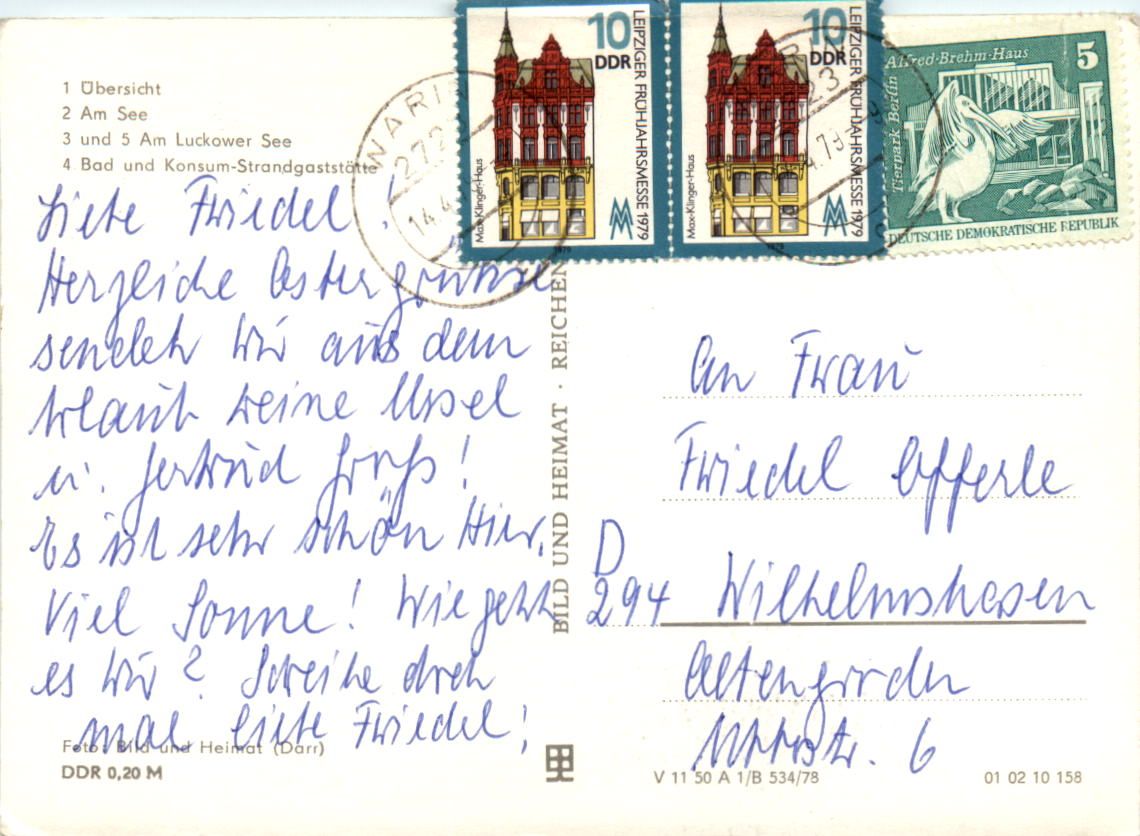 1 Übersicht
2 Am See
3 und 5 Am Luckower See
4 Bad und Konsum-Strandgaststätte
Liebe Friedel!
Herzliche Ostergrüsse
senden wir aus dem
Urlaub Deine Ursel
u. Gertrud Groß!
Es ist sehr schön Hier.
Viel Sonne! Wie geht
es Dir? Schreibe doch
mal liebe Friedel!
Foto: Bild und Heimat (Darr)
DDR 0,20 M
BILD UND HEIMAT · REICHEN
10
DDR
LEIPZIGER FRÜHJAHRSMESSE 1979
Max-Klinger-Haus
1979
10
DDR
LEIPZIGER FRÜHJAHRSMESSE 1979
Max-Klinger-Haus
1979
Alfred-Brehm-Haus
5
Tierpark Berlin
DEUTSCHE DEMOKRATISCHE REPUBLIK
WARIN
272
14.4
An Frau
Friedel Offerle
D
294 Wilhelmshaven
Altengroden
6
V 11 50 A 1/B 534/78
01 02 10 158